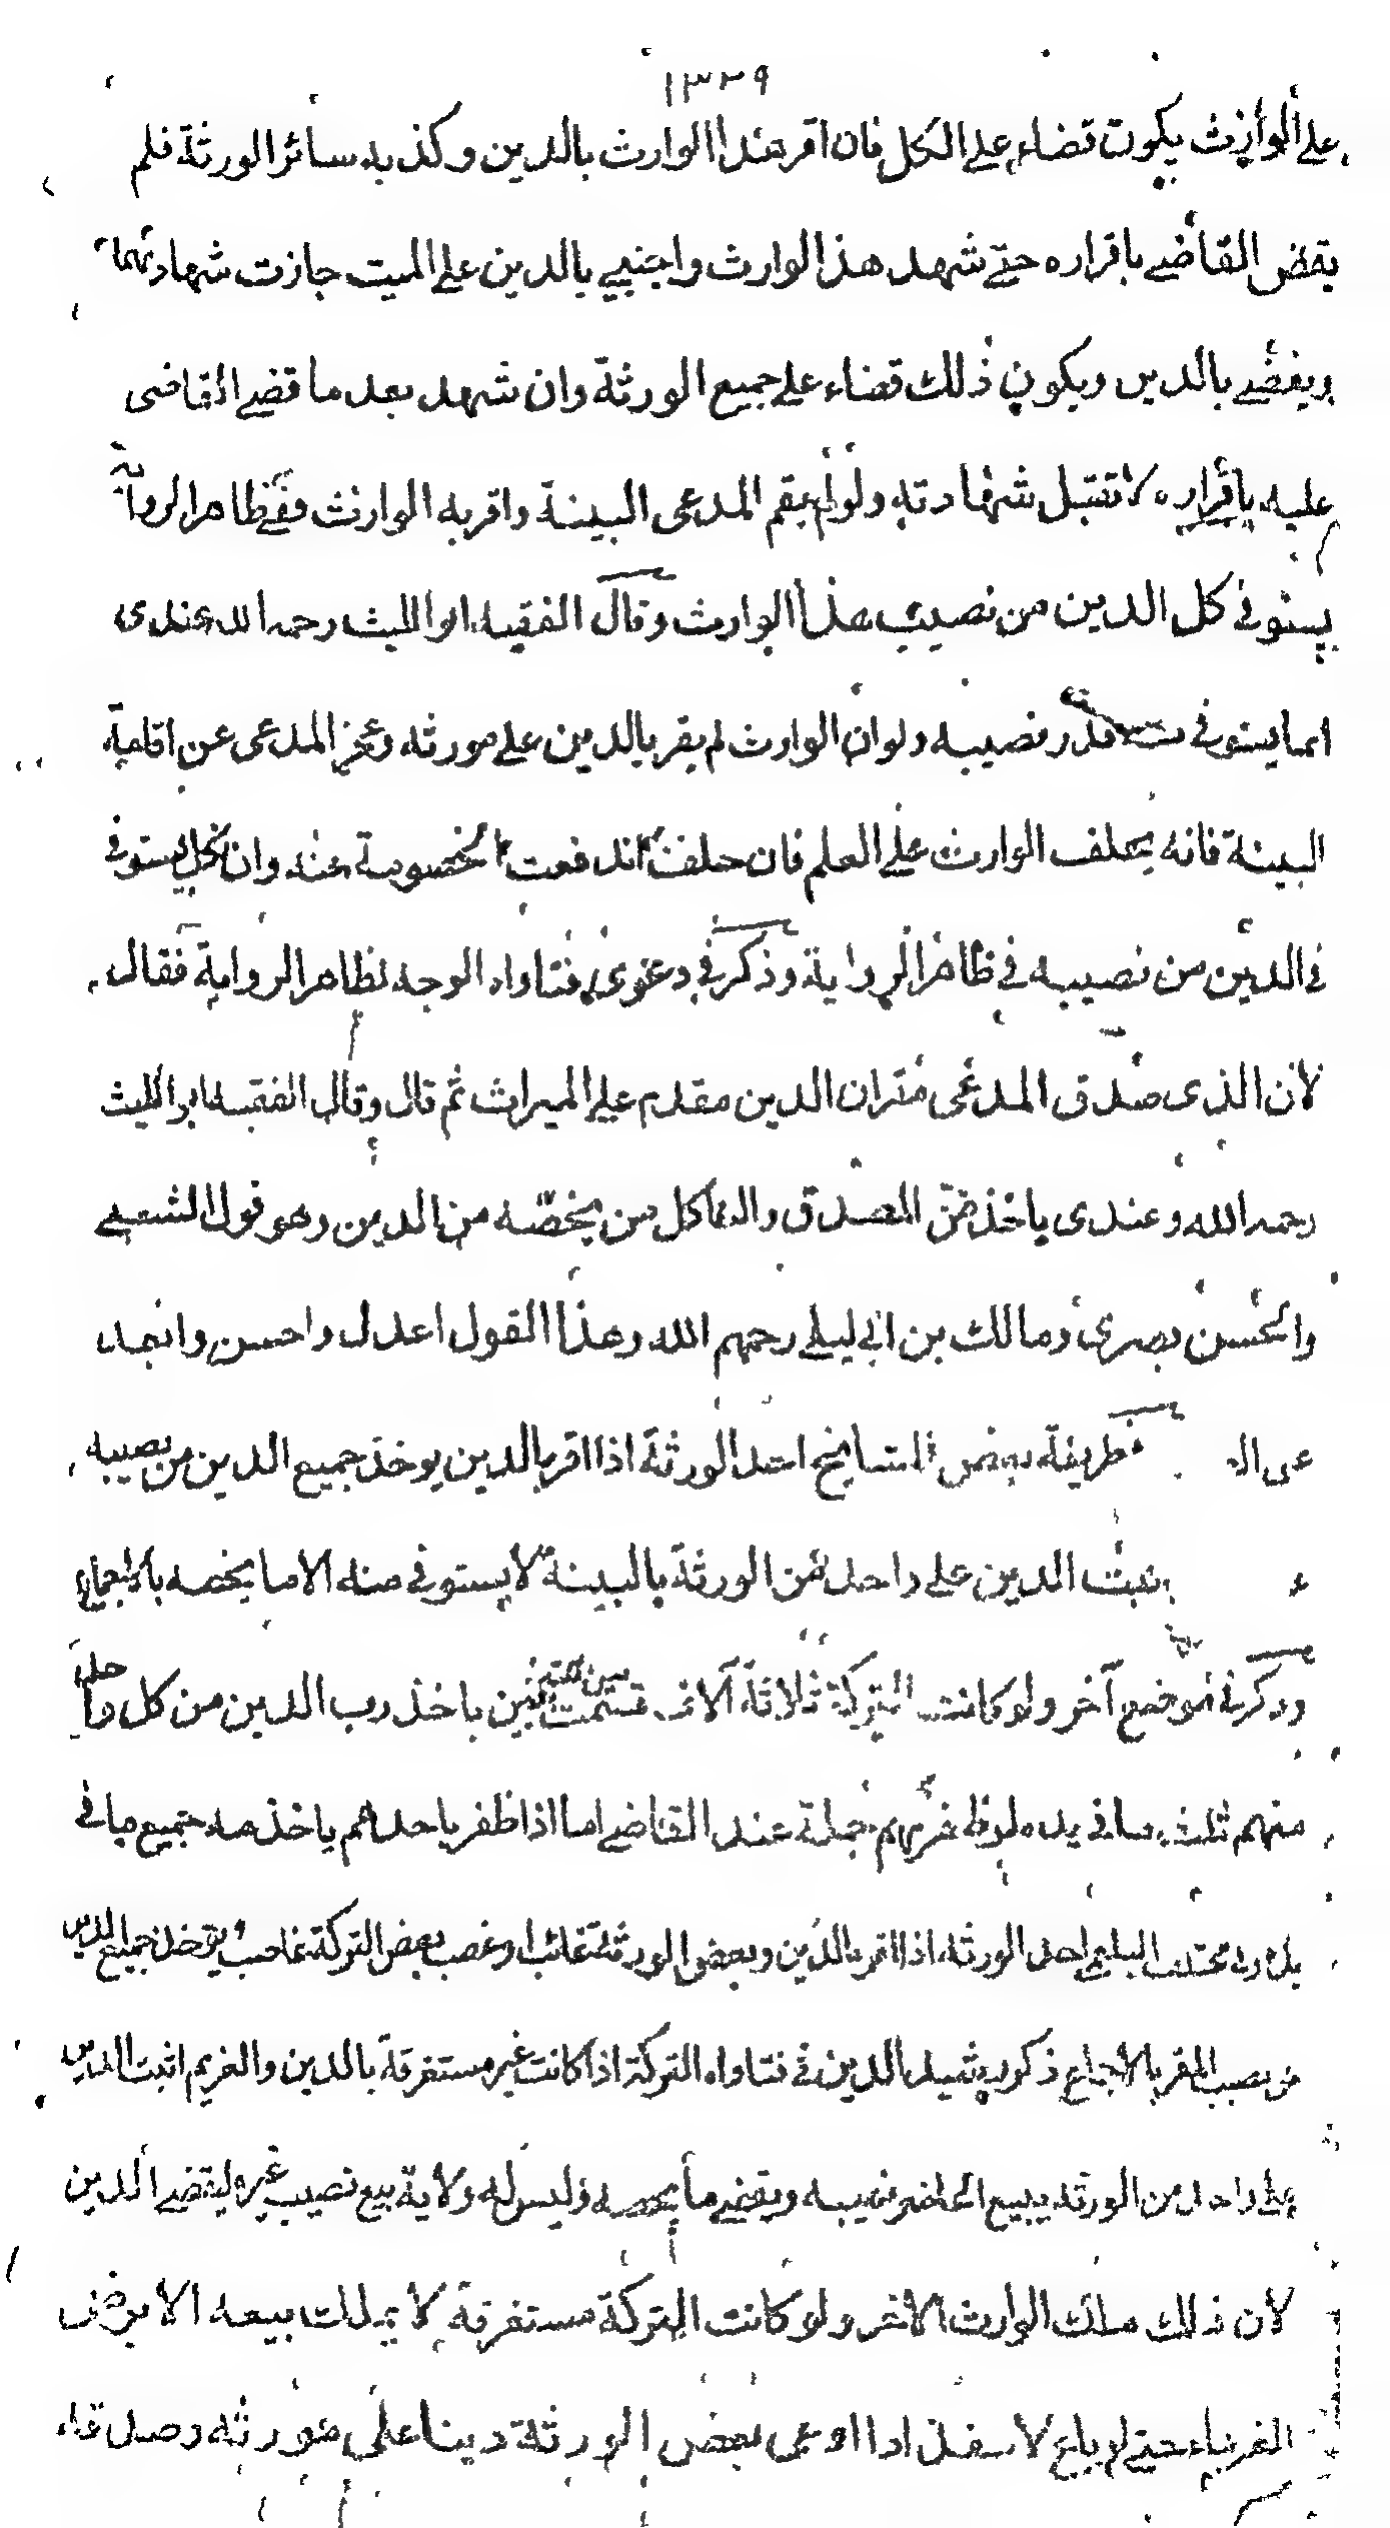 ١٣٢٩
على الوارث يكون قضاء على الكل فان اقر هذا الوارث بالدين وكذبه سائر الورثة فلم
يقض القاضي باقراره حتى شهد هذا الوارث واجنبي بالدين على الميت جازت شهادتهما
ويقضي بالدين ويكون ذلك قضاء على جميع الورثة وان شهد بعد ما قضى القاضي
عليه باقراره لا تقبل شهادته ولو لم يقم المدعى البينة واقر به الوارث ففي ظاهر الرواية
يستوفى كل الدين من نصيب هذا الوارث وقال الفقيه ابو الليث رحمه الله عندى
انما يستوفى قدر نصيبه ولو ان الوارث لم يقر بالدين على مورثه وعجز المدعى عن اقامة
البينة فانه يحلف الوارث على العلم فان حلف اندفعت الخصومة عنه وان نكل يستوفى
فى الدين من نصيبه في ظاهر الرواية وذكر في دعوى فتاواه الوجه لظاهر الرواية فقال
لان الذى صدق المدعى مقر ان الدين مقدم على الميراث ثم قال وقال الفقيه ابو الليث
رحمه الله وعندى ياخذ من المصدق والما كل من يخصه من الدين وهو قول الشعبي
والحسن بصرى ومالك بن ابي ليلى رحمهم الله وهذا القول اعدل واحسن وابعد
عن ال طريقة بعض المشايخ احد الورثة اذا اقر بالدين يوخذ جميع الدين من نصيبه
ثبت الدين على واحد من الورثة بالبينة لا يستوفى منه الا ما يخصه بالاجماع
وذكر في موضع آخر ولو كانت التركة ثلاثة آلاف قسمت بين ياخذ رب الدين من كل واحد
منهم ثلث ما في يده لو ظفر بهم جملة عند القاضي اما اذا ظفر باحدهم ياخذ منه جميع ما في
يده وفي احد الورثة اذا اقر بالدين وبعض الورثة غائب او غصب بعض التركة غاصب يوخذ جميع الدين
من نصيب المقر بالاجماع ذكر رشيد الدين في فتاواه التركة اذا كانت غير مستغرقة بالدين والغريم اثبت الدين
على واحد من الورثة يبيع الحاضر نصيبه ويقضي ما يخصه وليس له ولاية بيع نصيب غيره ليقضي الدين
لان ذلك ملك الوارث الاخر ولو كانت التركة مستغرقة لا يملك بيعه الا برضى
الغرماء حتى لو باع لا ينفذ اذا ادعى بعض الورثة دينا على مورثه وصدقه